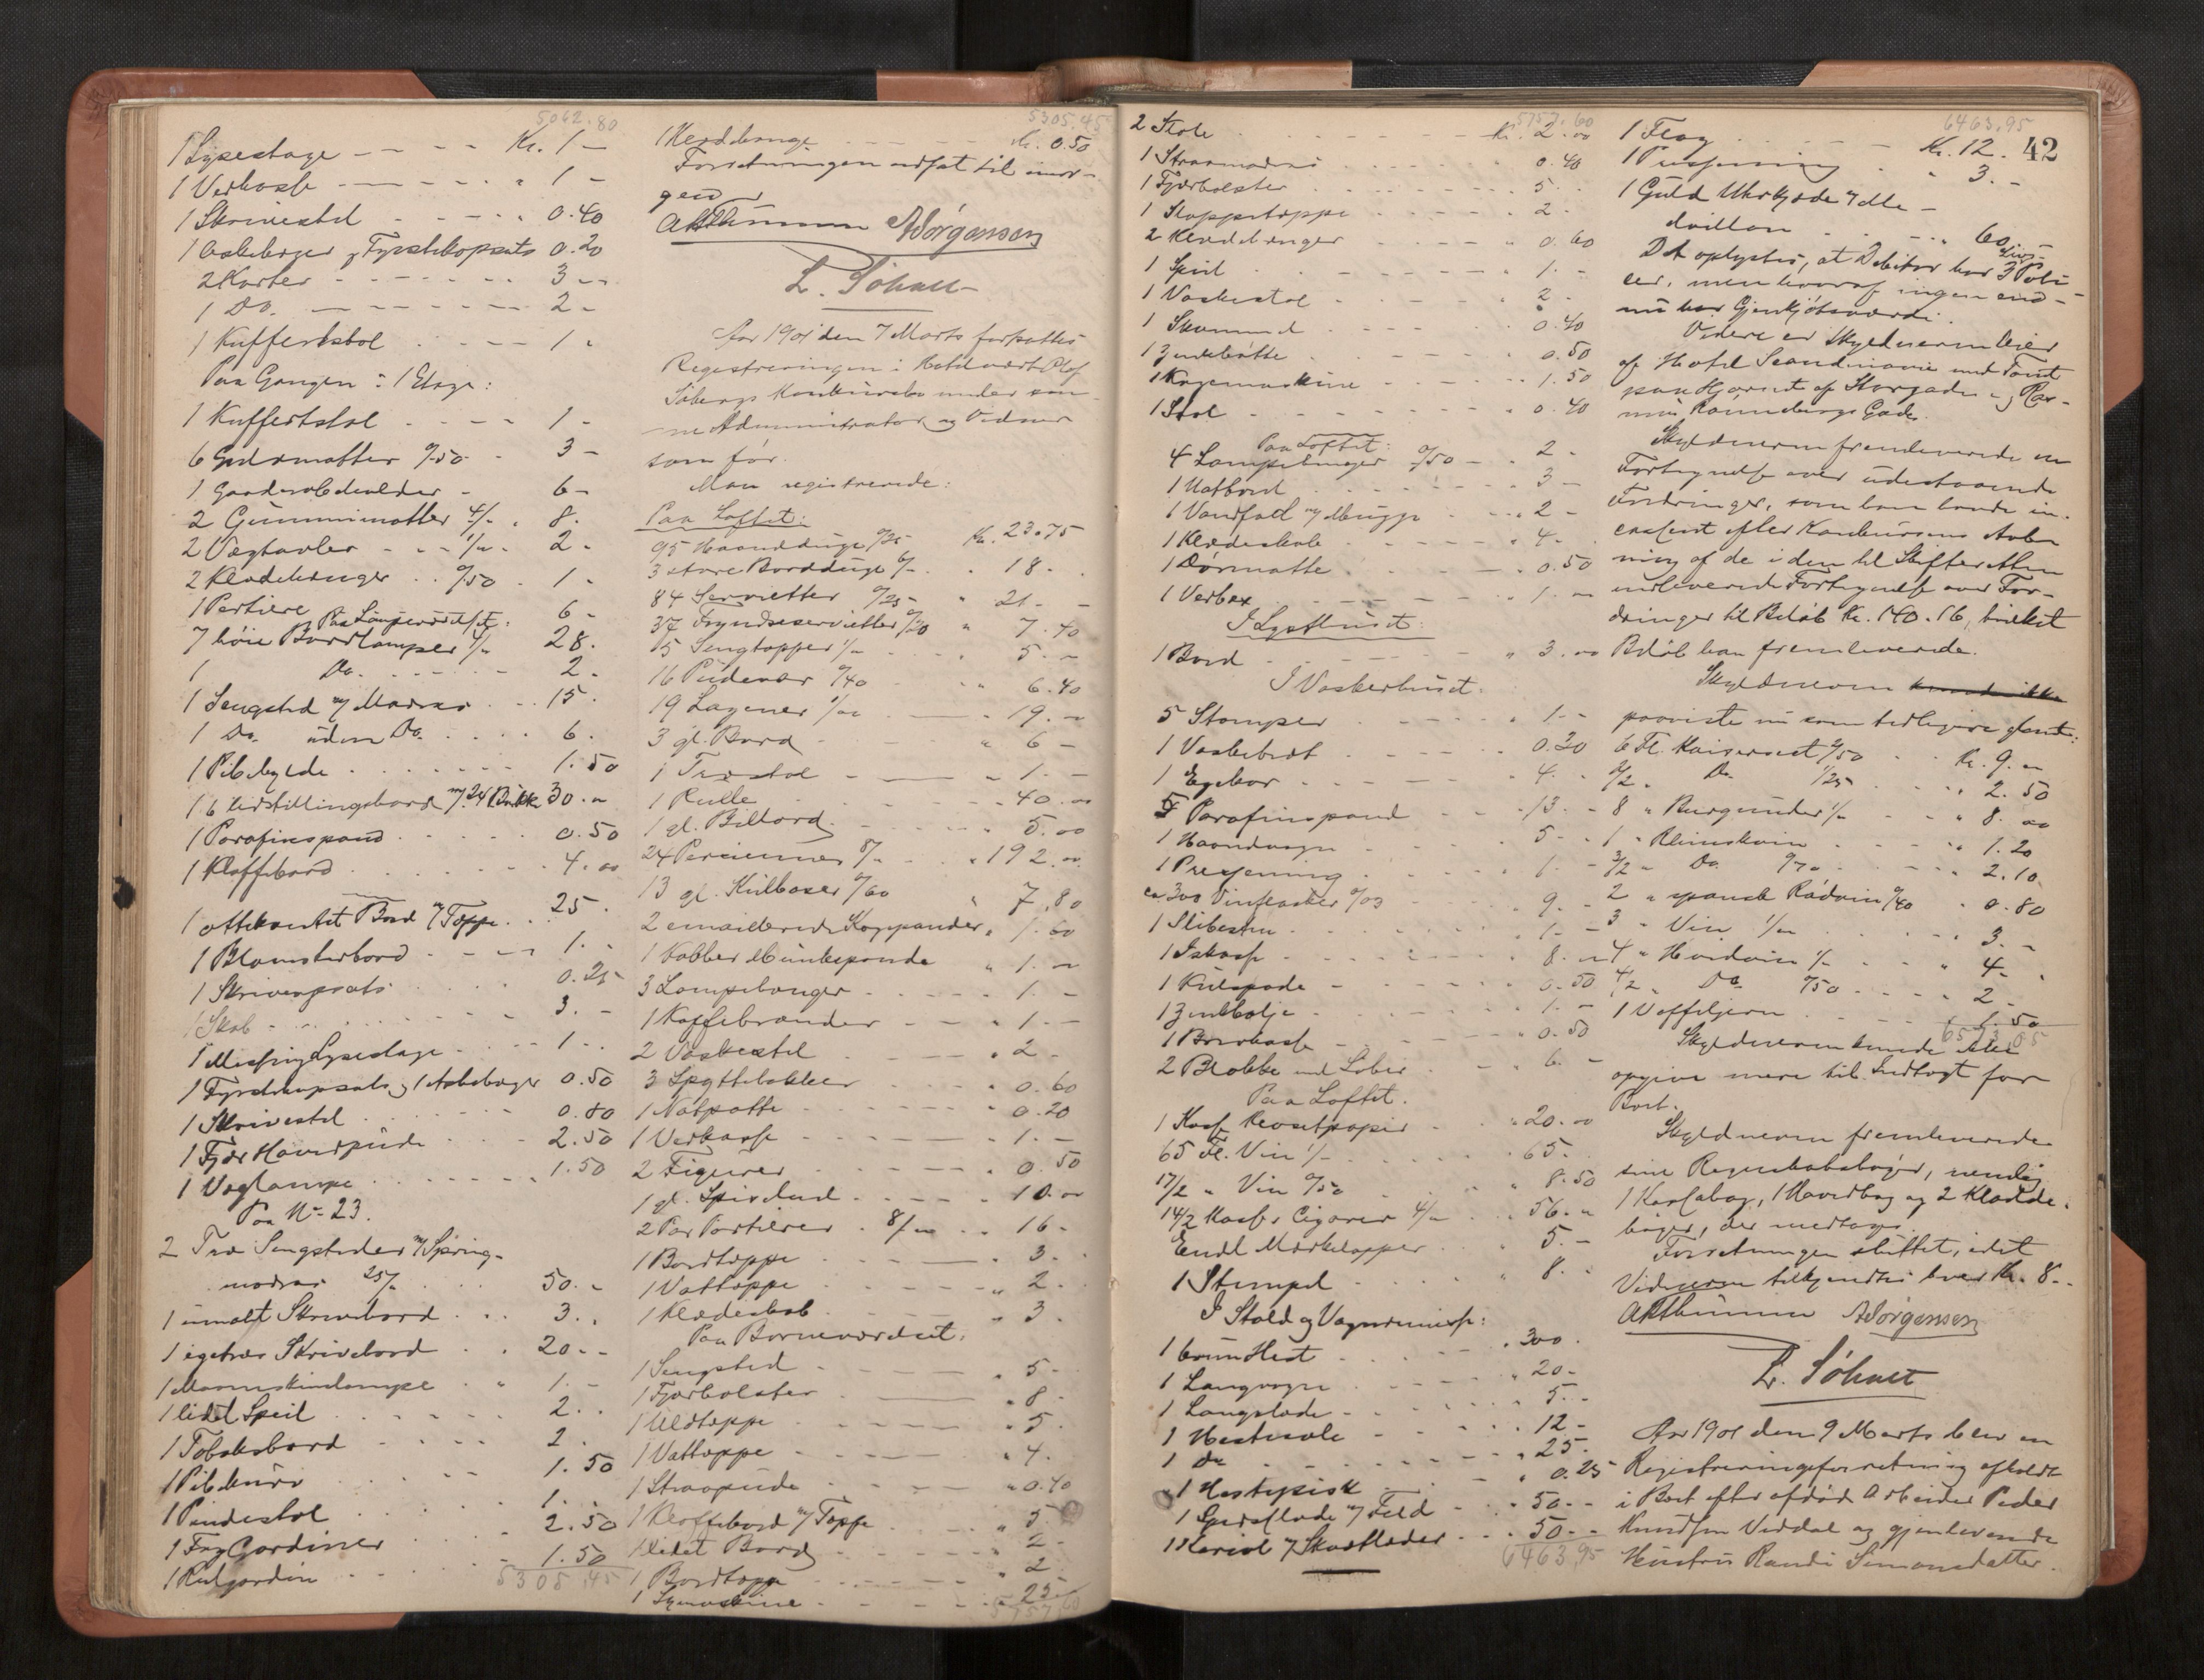 5062.80
1 Lysestage - - - - Kr. 1 -
1 Vedkasse - - - - " 1 -
1 Skrivestel - - - - " 0.40
1 Askebæger & Fyrstikopsats 0.20
2 Karter - - - - 3 -
1 Do. - - - - 2 -
1 Kuffertstol - - - 1 -
Paa Gangen i 1 Etage:
1 Kuffertstol - - - 1 -
6 Gulvmatter 0/50 - 3 -
1 Garderobeholder - 6 -
2 Gummimatter 4/- . 8.
2 Vægtavler - - 1/- . 2 -
2 Klædehænger . . 0/50 . 1 -
1 Portiere 6 -
Paa Lampeværelset:
7 höie Bordlamper 4/- 28.
1 Do. - - - - 2.
1 Sengsted m/ Madras . . 15.
1 Do. uden Do. . . . . 6.
1 Pibehylde . . . . . 1.50
1 6 tidstillingsbord m/ 24 Brikker 30. -
1 Parafinspand . . . . 0.50
1 Klaffebord . . . . 4.00
1 ottekantet Bord m/ Tæppe . . 25.
1 Blomsterbord - - - 1. -
1 Skriveopsats . . . 0.25
1 Skab - . . . . . 3. -
1 Messing Lysestage . . . 1 - .
1 Fyrstikopsats & 1 Askebæger 0.50
1 Skrivestel . . . . 0.80
1 Fjær Hovedpude . . . 2.50
1 Væglampe . . . . 1.50
Paa No 23.
2 Træ Sengesteder m/ Spring-
madras 25/- . . . 50. -
1 umalt Skrivebord . . . 3. .
1 egetræs Skrivebord . . 20 - -
1 Maaneskinslampe . " 1. -
1 lidet Speil . . . . 2. .
1 Tobaksbord . . . . 2.
1 Pibekurv 1.50
1 Pindestol . . . . 1. -
1 Fag Gardiner . . . . 2.50
1 Rulgardin . . . . 1.50
5305.45
5305.45
1 Klædehænge - - - - Kr. 0.50
Forretningen udsat til imor-
gen
AKThimmen AJörgensen
L. Söhuet
Aar 1901 den 7 Marts fortsattes
Registreringen i Hotelvært Olof
Söbergs Konkursbo under sam-
me Administrator og Vidner
som för.
Man registrerede:
Paa Loftet:
95 Haandduge 0/25 Kr. 23.75
3 store Borddüge 6/- . . 18. .
84 Servietter 0/25 " 21 - -
37 Frugtservietter 0/20 " 7.40
5 Sengtæpper 1/- . . . 5. -
16 Pudevar 0/40 . . 6.40
19 Lagener 1/00 - . 19. -
3 gl. Bord - - " 6 -
1 Træstol - - " 1. -
1 Rulle - - 40.00
1 gl. Billard . . . . 5.00
24 Persienner 8/- . . . 192.00
13 gl. Kulkasser 0/60 7.80
2 emaillerede Kogpander . 1.60
1 Kobber Munkepande " 1. -
3 Lampehænger . . . 1. -
1 Kaffebrænder - - . 1. -
2 Vaskestel . - . 2 -
3 Spyttebakker . . . 0.60
1 Natpotte - - - - 0.20
1 Vedkasse - - - - 1. -
2 Figurer . . - - . 0.50
1 gl. Spisebord . - . 10.00
2 Par Portierer . 8/00 . . 16 -
1 Bordtæppe . . - . 3. .
1 Vattæppe - - - . 2. -
1 Klædeskab - - - " 3.
Paa Borneværelset.
1 Sengsted . - - - " 5 -
1 Fjærbolster . - - " 8 -
1 Uldtæppe . - - " 5.
1 Vattæppe - - - . 4.
1 Straapude - - - " 0.40
1 Klaffebord m/ Tæppe . . . 5.
1 lidet Bord . - - " 2 -
1 Bordtæppe . . . " 2.
1 Symaskine - - - " 25 -
5757.60
5757.60
2 Stole - - - - Kr. 2.00
1 Straamadras - - - 0.40
1 Fjærbolster - - - - 5. .
1 Stoppetæppe - - - 2 -
2 Klædehænger - - - " 0.60
1 Speil . - - - - 1. -
1 Vaskestol - - - - " 2 -
1 Skammel - - - - 0.40
1 Zinkbötte - - - - 0.50
1 Kogemaskine - - - . 1.50
1 Stol - - - - " 0.40
Paa Loftet:
4 Lampehænger 0/50 - " 2 -
1 Natbord . . . . . 3 -
1 Vandfad m/ Mugge . . . 2 -
1 Klædeskab . . . . " 4 -
1 Dörmatte . . . - 0.50
1 Vedbox . - - - - " 1. 00
I Lysthuset:
1 Bord - - - - " 3.00
I Vaskerhuset:
5 Stamper - - - . 1 - -
1 Vaskebræt - - - - 0.20
1 Egekar . - - - - 4. .
5 Parafinspand - - - 13. -
1 Haandvogn - - - - 5 - -
1 Presenning . . . . 1. -
ca 300 Vinflasker 0/03 - 9. -
1 Slibesten . . . . " 1. -
1 Iskasse - - - - 8. -
1 Kulspade - - - - 0.50
1 Zinkbalje - - - - 1. -
1 Brevkasse - - - - " 0.50
2 Blokke med Löber . - 6. -
Paa Loftet.
1 Kasse Klosetpapir . . " 20.00
65 Fl. Vin 1/- . . " 65 -
17/2 " Vin 0/50 . . " 8.50
14/2 Kasser Cigarer 4/- . . 56. -
Endl Mærkelapper . . . 5. -
1 Stempel . . . . " 8. .
I Stald og Vognremisse:
1 brun Hest . . . . " 300.
1 Langvogn . . . . " 20 -
1 Langslæde - - - - 5. -
1 Hestesele - - - " 12 -
1 Do - - - - " 25.
1 Hestepisk . . . . " 0.25
1 Spidsslæde m/ Feld - - " 50. -
1 Kariol m/ Skvætlæder - - " 50 - -
6463.95
6463.95
42
1 Flag - - - - Kr. 12. -
1 Presenning . . . " 3. -
1 Guld Uhrkjæde & Me-
daillon . . - " 60. -
Det oplystes, at Debitor har 3 Livs-Poli-
cer, men hvoraf ingen end-
nu har Gjenkjöbsværdi.
Videre er Skyldneren Eier
af Hotel Scandinavie med Tomt
paa Hjörnet af Storgaden og Ras-
mus Rönnebergs Gade.
Skyldneren fremleverede en
Fortegnelse over udestaaende
Fordringer, som han havde in-
casseret efter Konkursens Aab-
ning af de i den til Skifteretten
indleverede Fortegnelse over For-
dringer til Belöb Kr. 140.16, hvilket
Belöb han fremleverede.
Skyldneren kunde ikke
paaviste nu som tidligere glemt:
6 Fl. Kaisersect 1/50 . . Kr. 9. -
2/2 " Do 1/25 . . " 2.50
8 " Burgunder 1/- - - " 8.00
1 " Rhinskvin . . " 1.20
3/2 " Do 0/70 . . 2.10
2 " spansk Rödvin 0/40 " 0.80
3 " Vin 1/00 . . 3. -
4 " Hvidvin 1/- - " 4. -
4/2 " Do 0/50 . . . 2 -
1 Vaffeljern . . . " 1.50
6573.05
Skyldneren kunde ikke
opgive mere til Indtægt for
Boet.
Skyldneren fremleverede
sine Regnskabsböger, nemlig
1 Kassabog, 1 Hovedbog og 2 Kladde-
böger, der medtoges.
Forretningen sluttet, idet
Vidnerne tilkjendtes hver Kr. 8 - .
AKThimmen AJörgensen
L. Söhuet
Aar 1901 den 9 Marts blev en
Registreringsforretning afholdt
i Boet efter afdöd Arbeider Peder
Knudsen Viddal og gjenlevende
Hustru Randi Simonsdatter.